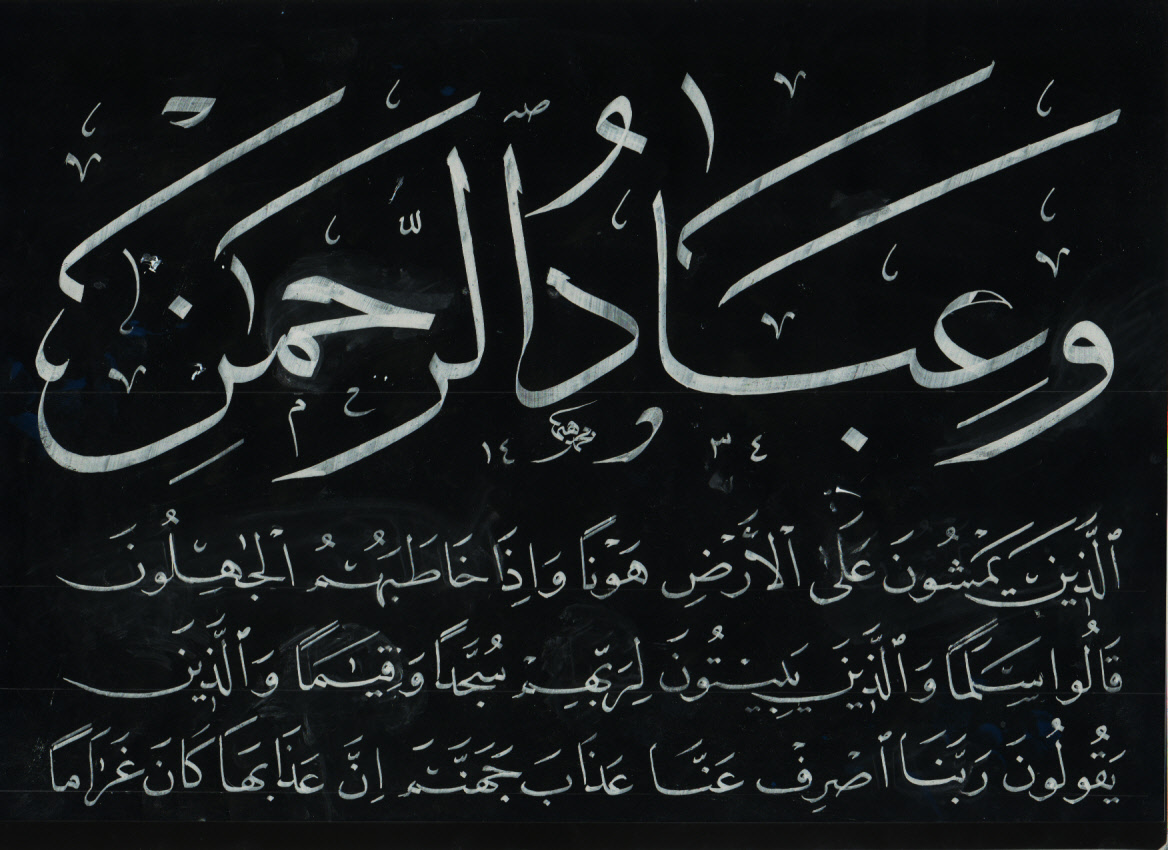 وَعِبَادُ الرَّحْمَٰنِ
١٤ ٣٤
الَّذِينَ يَمْشُونَ عَلَى الْأَرْضِ هَوْنًا وَإِذَا خَاطَبَهُمُ الْجَٰهِلُونَ
قَالُوا سَلَٰمًا وَالَّذِينَ يَبِيتُونَ لِرَبِّهِمْ سُجَّدًا وَقِيَٰمًا وَالَّذِينَ
يَقُولُونَ رَبَّنَا اصْرِفْ عَنَّا عَذَابَ جَهَنَّمَ إِنَّ عَذَابَهَا كَانَ غَرَامًا